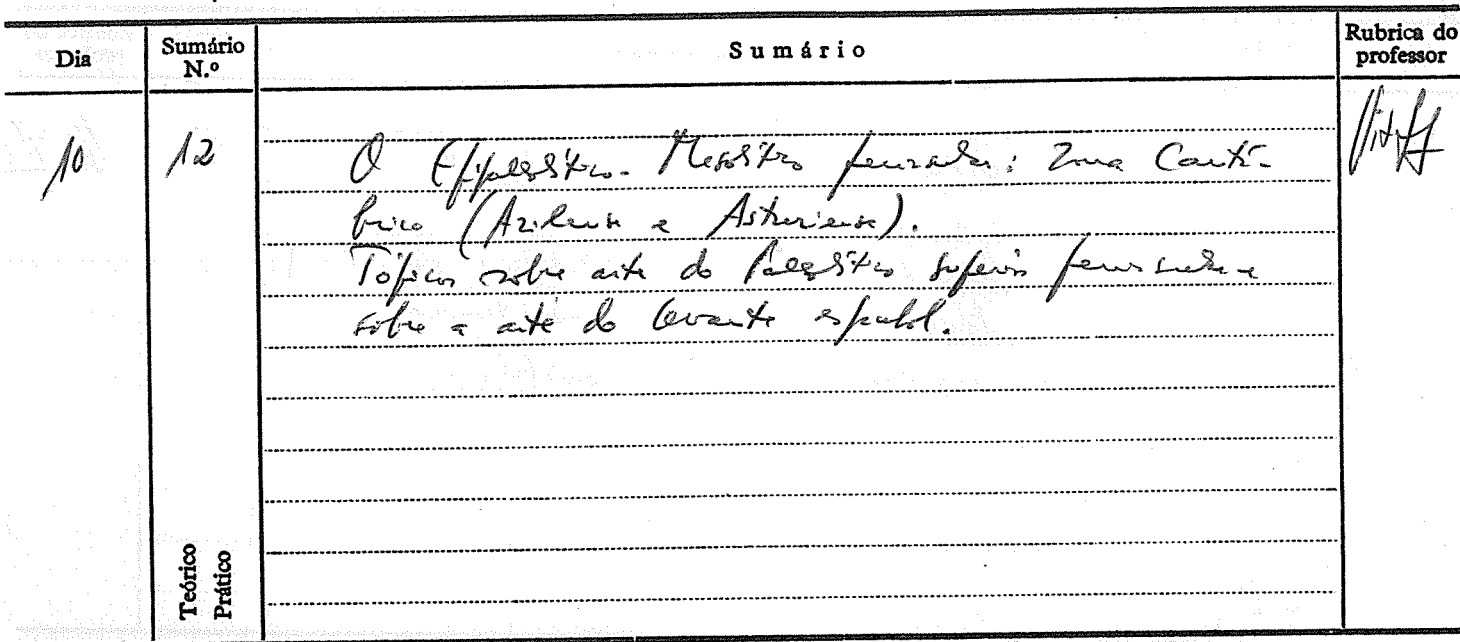 Dia
Sumário N.º
Sumário
Rubrica do professor
10
12
O Epipaleolítico-Mesolítico peninsular: Zona Cantá-
brica (Azilense e Asturiense).
Tópicos sobre arte do Paleolítico superior peninsular e
sobre a arte do levante espanhol.
Teórico
Prático